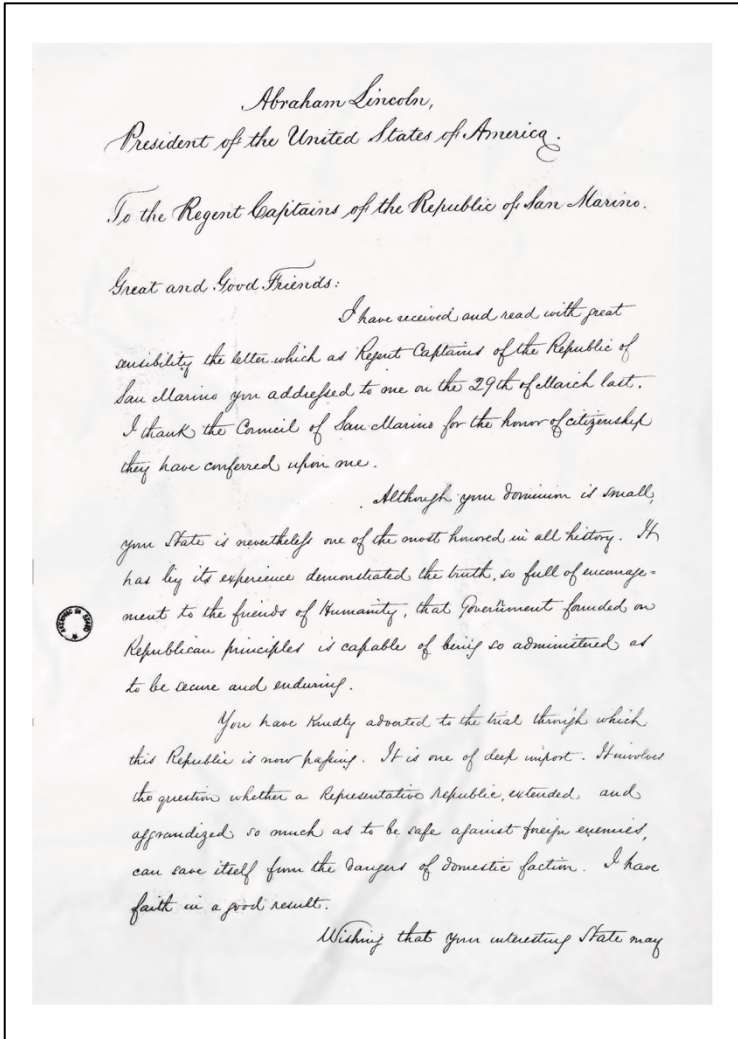 Abraham Lincoln,
President of the United States of America.
To the Regent Captains of the Republic of San Marino.
Great and Good Friends:
I have received and read with great
sensibility the letter which as Regent Captains of the Republic of
San Marino you addressed to me on the 29th of March last.
I thank the Council of San Marino for the honor of citizenship
they have conferred upon me.
Although your dominion is small,
your State is nevertheless one of the most honored in all history. It
has by its experience demonstrated the truth, so full of encourage=
ment to the friends of Humanity, that Government founded on
Republican principles is capable of being so administered as
to be secure and enduring.
You have kindly adverted to the trial through which
this Republic is now passing. It is one of deep import. It involves
the question whether a Representative republic, extended and
aggrandized so much as to be safe against foreign enemies,
can save itself from the dangers of domestic faction. I have
faith in a good result.
Wishing that your interesting State may